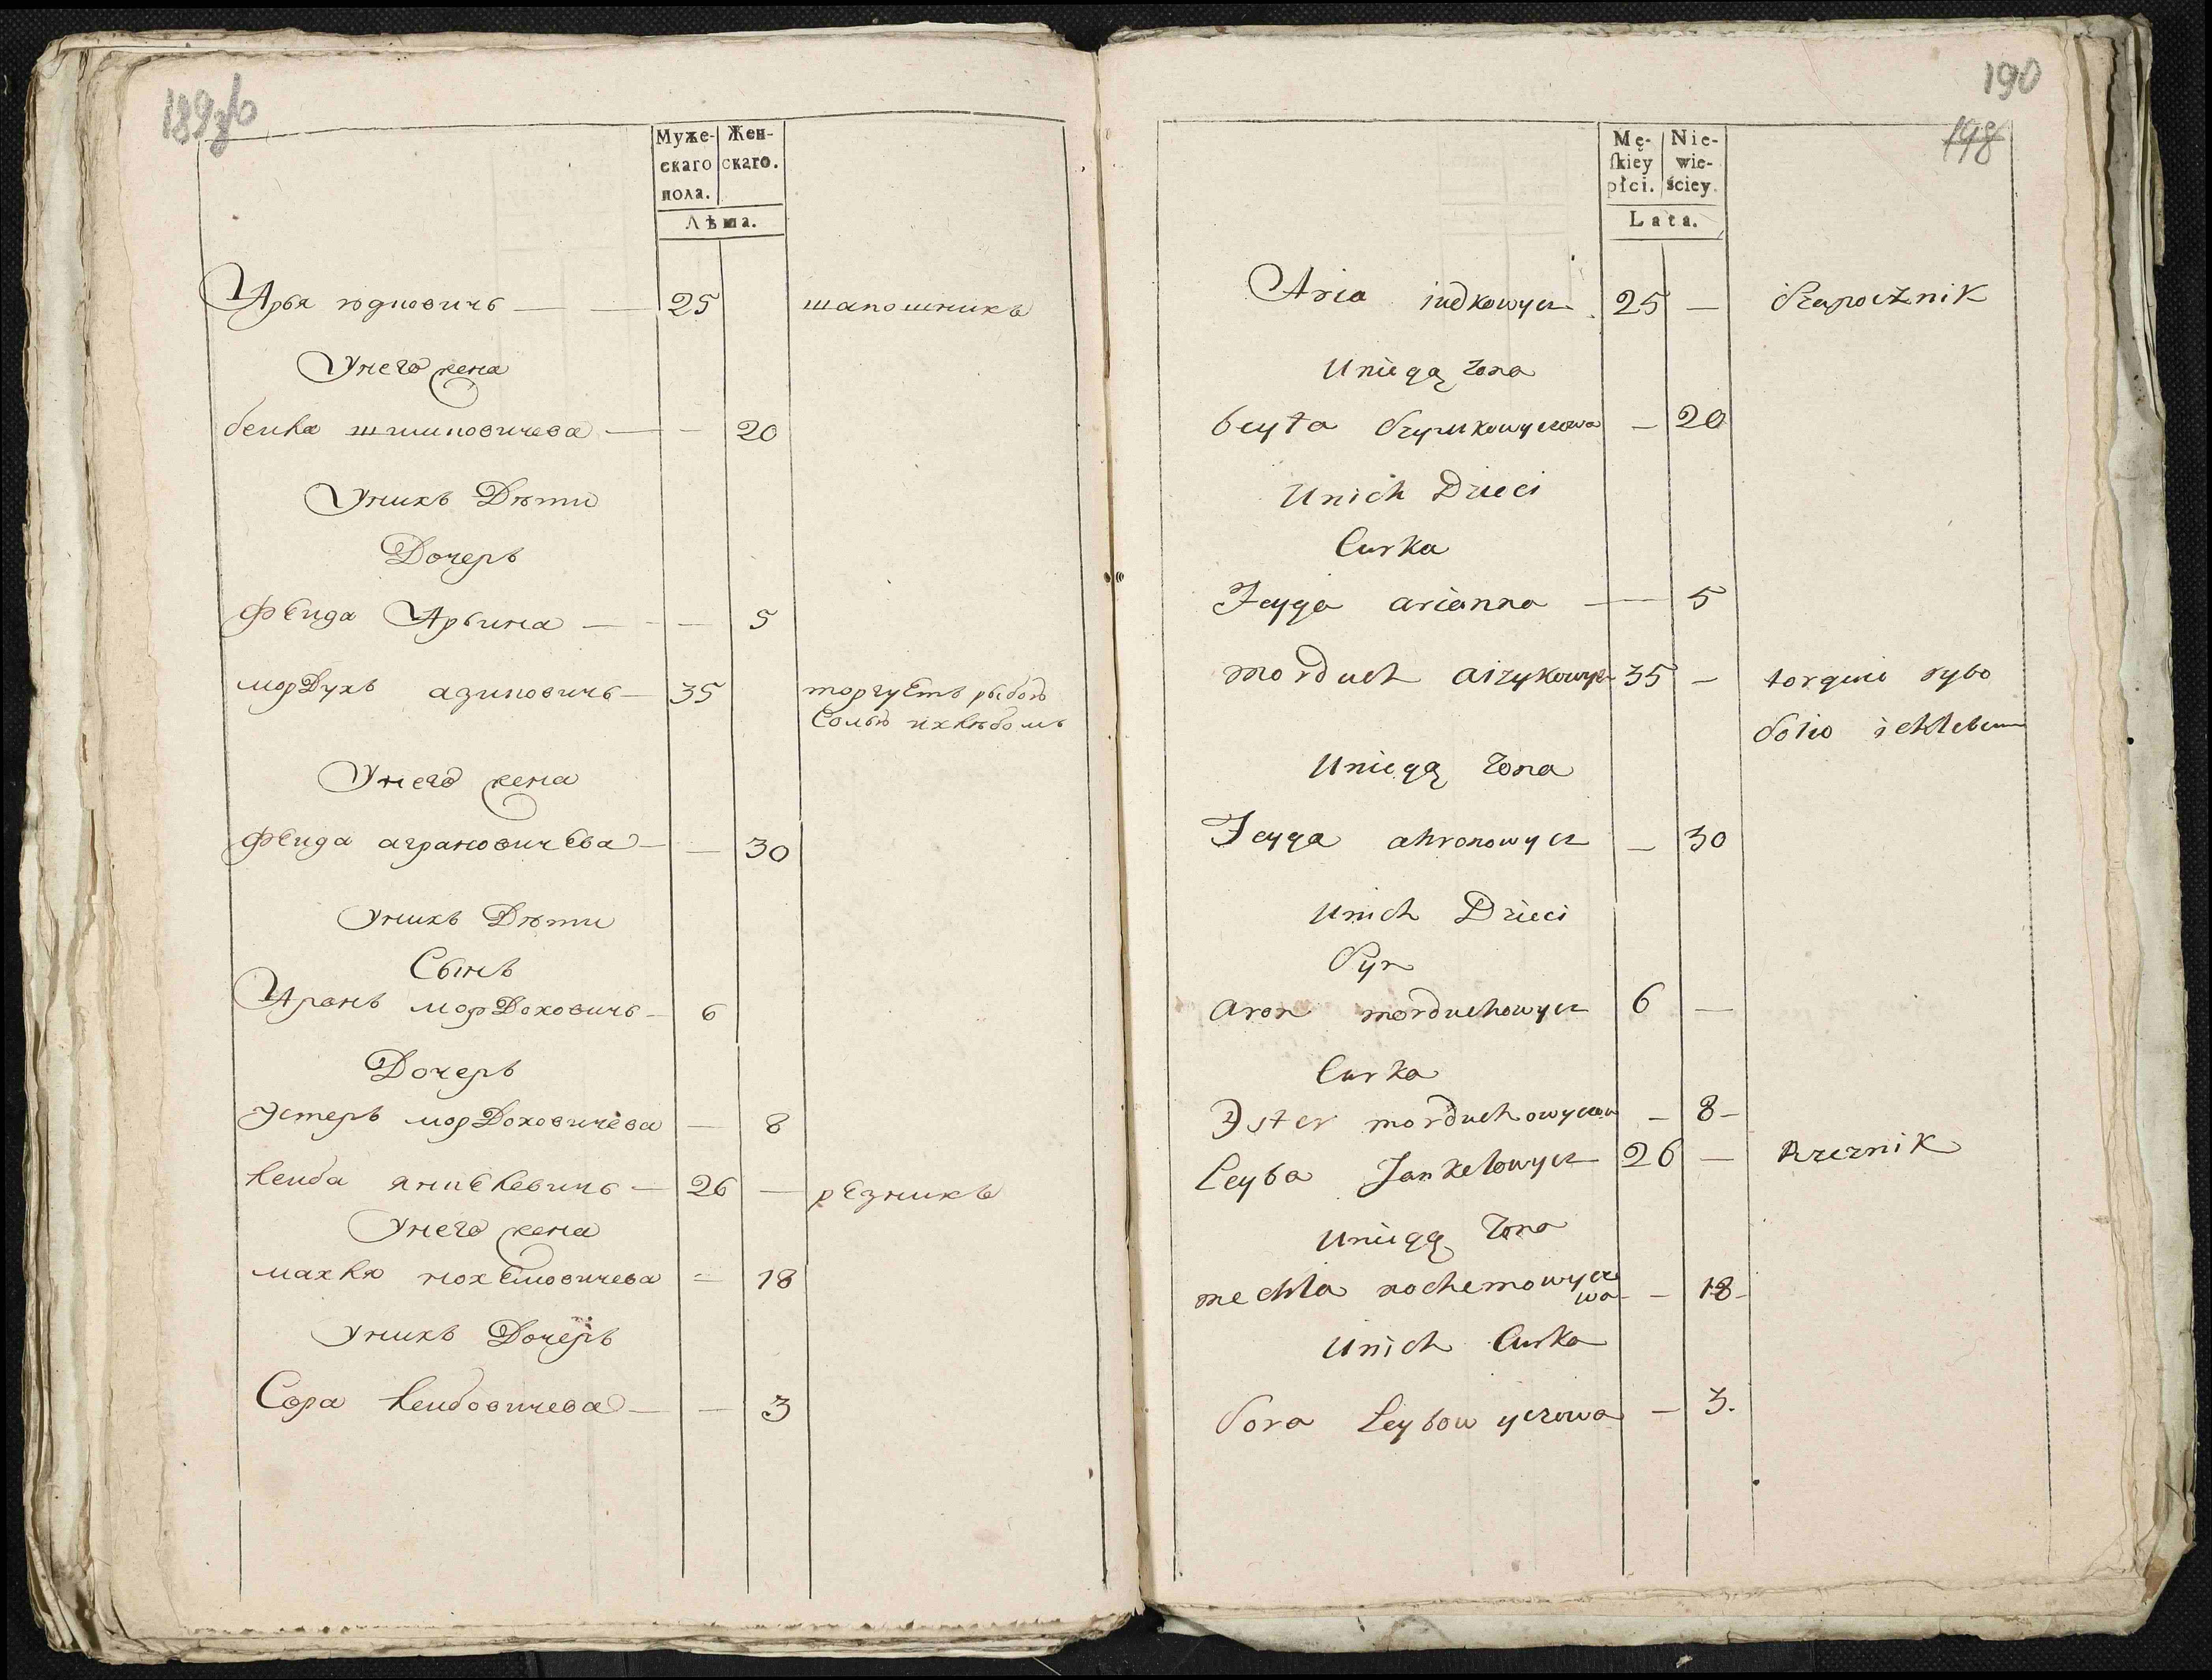 189об
Муже- Жен-
скаго скаго.
пола.
Лѣта.
Арья юдковичъ — — 25 шапошникъ
Унего жена
бейла шимковичева — — 20
Унихъ Дѣти
Дочерь
Фейга Арьина — — — 5
морДухъ азиковичъ — 35 торгуетъ рыбою
Солью ихлѣбомъ
Унего жена
Фейга аграновичева — — 30
Унихъ Дѣти
Сынъ
Аронъ морДоховичъ — 6
Дочерь
Эстеръ морДоховичева — 8
лейба янкелевичъ — 26 — рЕзникъ
Унего жена
махля нохемовичева = 18
Унихъ Дочерь
Сора лейбовичева — — 3
190
198
Mę- Nie-
skiey wie-
płci. ściey.
Lata.
Aria iudkowycz 25 — Szapocznik
Uniegą zona
beyła Szymkowyczowa — 20
Unich Dzieci
Curka
Feyga arianna — 5
morduch aizykowycz 35 — torguie rybo
Solio i chlebem
Uniegą zona
Feyga ahronowycz — 30
Unich Dzieci
Syn
aron morduchowycz 6 —
Curka
Ester morduchowyczowa — 8 —
Leyba Jankelowycz 26 — Rzeznik
Uniegą zona
mechla nochemowycze
wa — — 18 —
Unich Curka
Sora Leybowyczowa — 3.